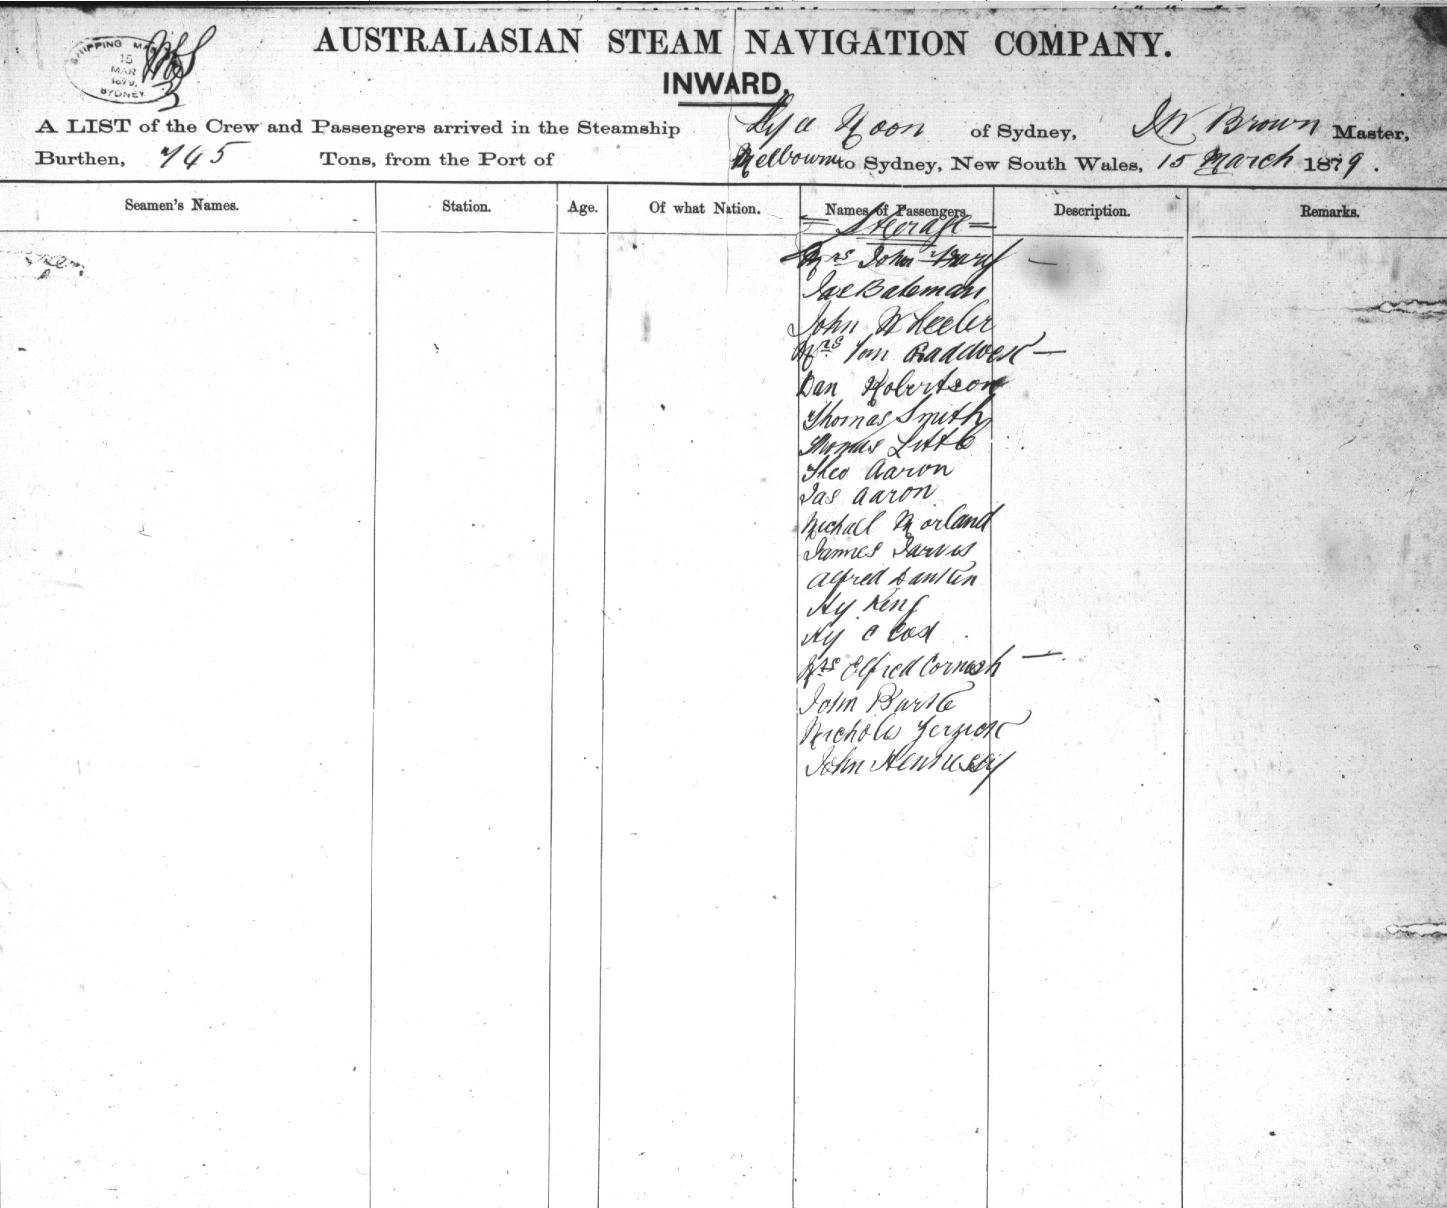 SHIPPING MAS
15
MAR
1879.
SYDNEY
AUSTRALASIAN STEAM NAVIGATION COMPANY.
INWARD,
A LIST of the Crew and Passengers arrived in the Steamship Ly ee Moon of Sydney, J W Brown Master,
Burthen, 745 Tons, from the Port of Melbourne to Sydney, New South Wales, 15 March 1879.
Seamen's Names. Station. Age. Of what Nation. Names of Passengers Description. Remarks.
= Steerage =
Mrs John
Jas Bateman
John Wheeler
Mrs Tom
Dan Robertson
Thomas Smith
Thomas Little
Theo Aaron
Jas Aaron
Michael Morland
James Jarvis
Alfred
Hy King
Hy C Cox
Mrs Elfred Cornish
John Burke
Nicholas
John Hennessy